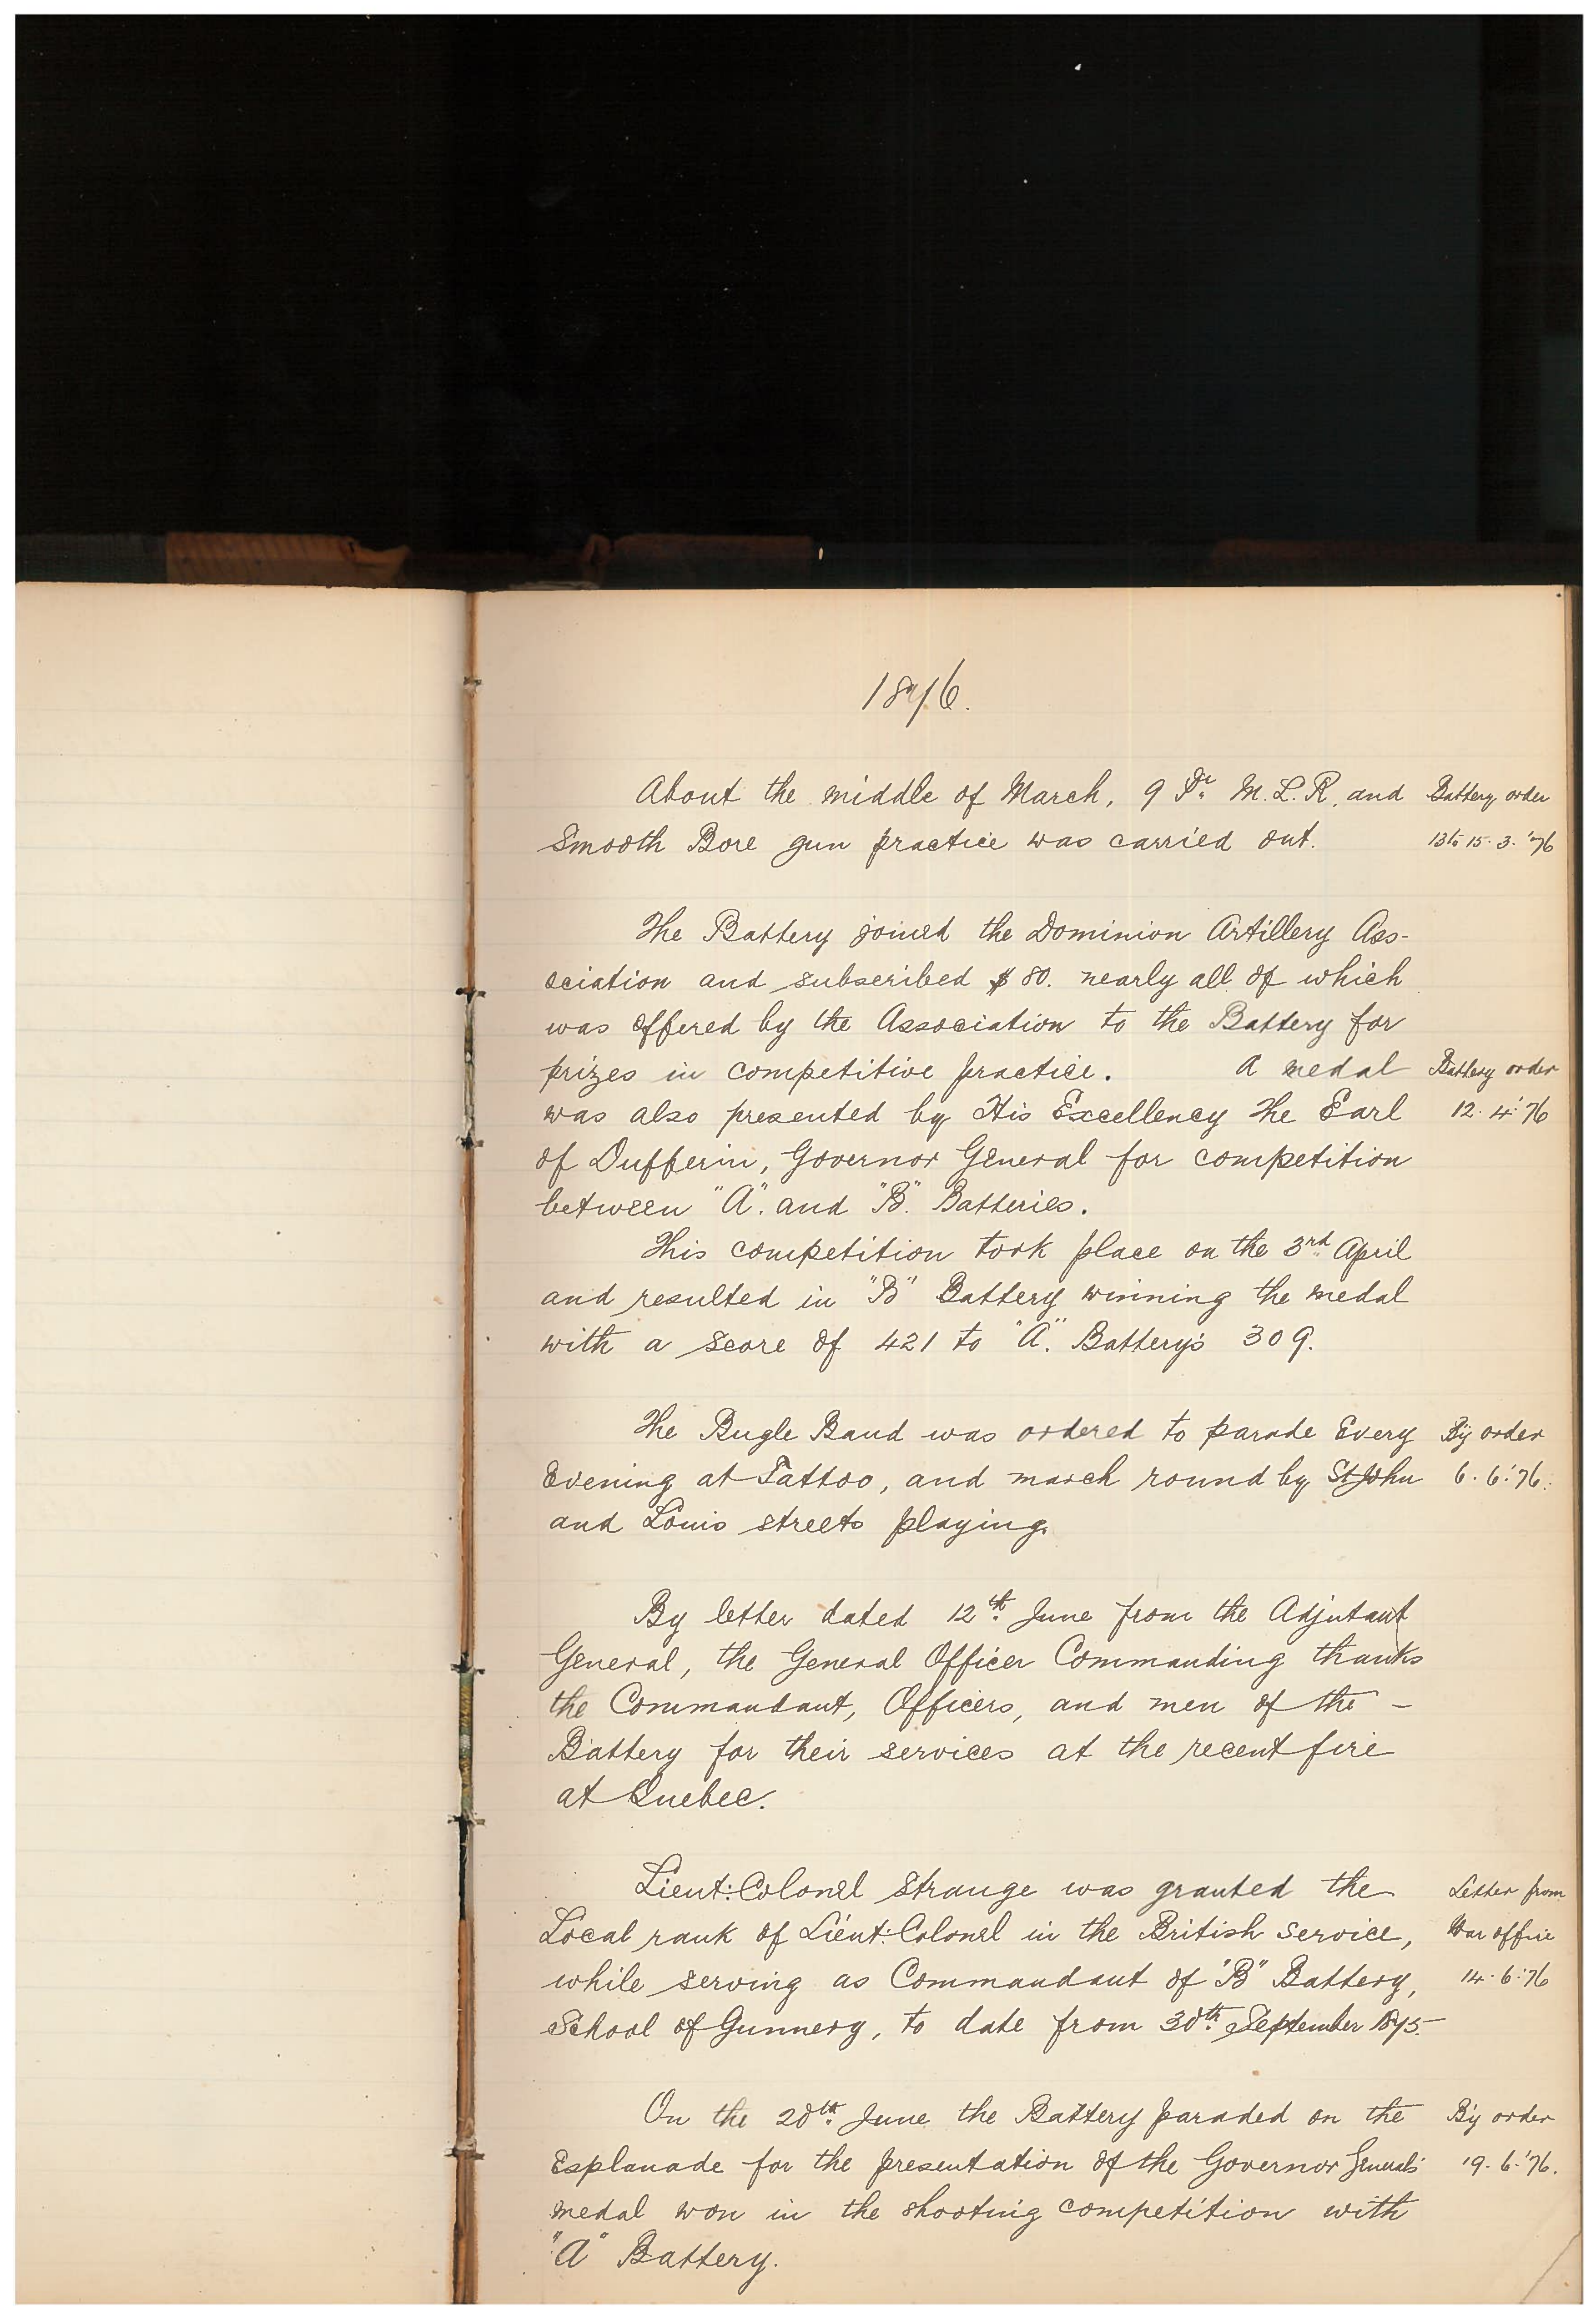 1876.
About the middle of March, 9 Pr. M.L.R. and Battery order
Smooth Bore gun practice was carried out. 13 to 15.3.'76
The Battery joined the Dominion Artillery Ass-
ociation and subscribed $80. nearly all of which
was offered by the Association to the Battery for
prizes in competitive practice. A medal Battery order
was also presented by His Excellency The Earl 12.4.'76
of Dufferin, Governor General for competition
between "A". and "B". Batteries.
This competition took place on the 3rd April
and resulted in "B" Battery winning the medal
with a score of 421 to "A". Battery's 309.
The Bugle Band was ordered to parade Every By order
Evening at Tattoo, and march round by St John 6.6.'76.
and Louis streets playing.
By letter dated 12th June from the Adjutant
General, the General Officer Commanding thanks
the Commandant, Officers, and men of the –
Battery for their services at the recent fire
at Quebec.
Lieut:Colonel Strange was granted the Letter from
Local rank of Lieut:Colonel in the British Service, War office
while serving as Commandant of "B" Battery, 14.6.'76
School of Gunnery, to date from 30th September 1875
On the 20th June the Battery paraded on the By order
Esplanade for the presentation of the Governor Generals' 19.6.'76.
medal won in the shooting competition with
"A" Battery.